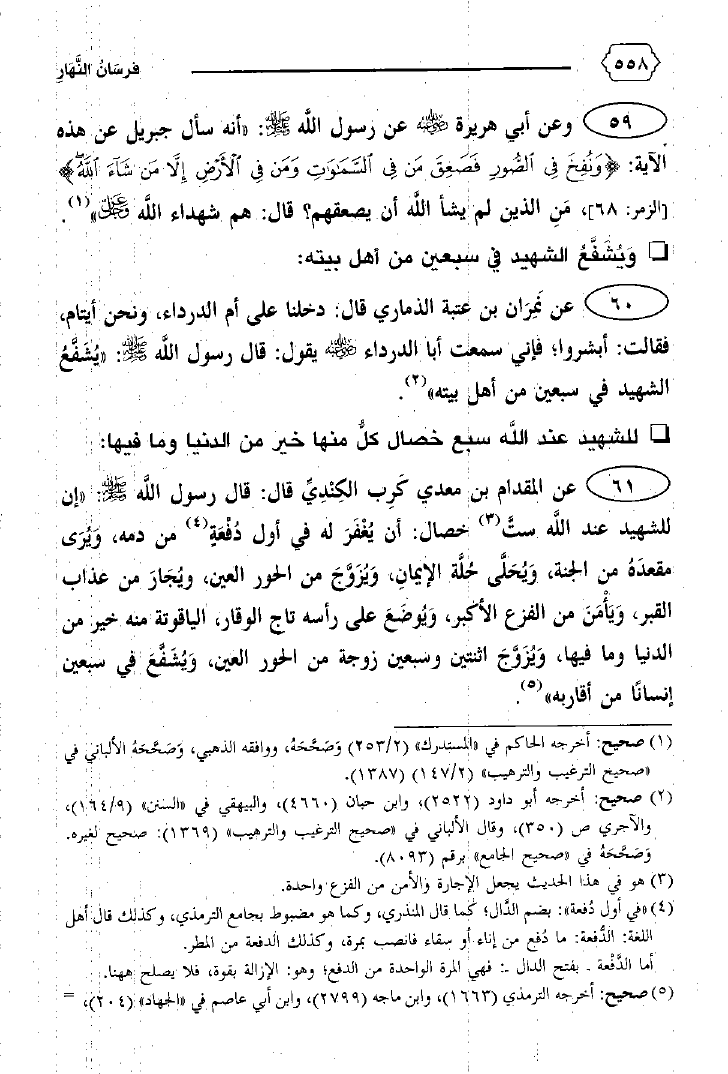 ٥٥٨ فرسَانُ النَّهَارِ
٥٩ وعن أبي هريرة رضي الله عنه عن رسول اللَّه ﷺ: «أنه سأل جبريل عن هذه
الآية: ﴿وَنُفِخَ فِي الصُّورِ فَصَعِقَ مَن فِي السَّمَاوَاتِ وَمَن فِي الْأَرْضِ إِلَّا مَن شَاءَ اللَّهُ﴾
[الزمر: ٦٨]، مَنِ الذين لم يشأ اللَّه أن يصعقهم؟ قال: هم شهداء اللَّه عز وجل»(١).
❑ وَيُشَفَّعُ الشهيد في سبعين من أهل بيته:
٦٠ عن نَمِرَان بن عتبة الذماري قال: دخلنا على أم الدرداء، ونحن أيتام،
فقالت: أبشروا؛ فإني سمعت أبا الدرداء رضي الله عنه يقول: قال رسول اللَّه ﷺ: «يُشَفَّعُ
الشهيد في سبعين من أهل بيته»(٢).
❑ للشهيد عند اللَّه سبع خصال كلٌّ منها خير من الدنيا وما فيها:
٦١ عن المقدام بن معدي كَرِب الكِنْدِيِّ قال: قال رسول اللَّه ﷺ: «إن
للشهيد عند اللَّه ستَّ(٣) خصال: أن يُغْفَرَ له في أول دُفْعَةٍ(٤) من دمه، وَيُرَى
مقعدَهُ من الجنة، وَيُحَلَّى حُلَّة الإيمانِ، وَيُزَوَّجَ من الحور العين، ويُجَارَ من عذاب
القبر، وَيَأْمَنَ من الفزع الأكبر، وَيُوضَعَ على رأسه تاج الوقار، الياقوتة منه خير من
الدنيا وما فيها، وَيُزَوَّجَ اثنتين وسبعين زوجة من الحور العين، وَيُشَفَّعَ في سبعين
إنسانًا من أقاربه»(٥).
(١) صحيح: أخرجه الحاكم في «المستدرك» (٢٥٣/٢) وَصَحَّحَهُ، ووافقه الذهبي، وَصَحَّحَهُ الألباني في
«صحيح الترغيب والترهيب» (١٤٧/٢) (١٣٨٧).
(٢) صحيح: أخرجه أبو داود (٢٥٢٢)، وابن حبان (٤٦٦٠)، والبيهقي في «السنن» (١٦٤/٩)،
والآجري ص (٣٥٠)، وقال الألباني في «صحيح الترغيب والترهيب» (١٣٦٩): صحيح لغيره.
وَصَحَّحَهُ في «صحيح الجامع» برقم (٨٠٩٣).
(٣) هو في هذا الحديث يجعل الإجارة والأمن من الفزع واحدة.
(٤) «في أول دُفعة»: بضم الدَّال؛ كما قال المنذري، وكما هو مضبوط بجامع الترمذي، وكذلك قال أهل
اللغة: الدُّفعة: ما دُفع من إناء أو سقاء فانصب بمرة، وكذلك الدفعة من المطر.
أما الدَّفْعة ـ بفتح الدال ـ: فهي المرة الواحدة من الدفع؛ وهو: الإزالة بقوة، فلا يصلح ههنا.
(٥) صحيح: أخرجه الترمذي (١٦٦٣)، وابن ماجه (٢٧٩٩)، وابن أبي عاصم في «الجهاد» (٢٠٤)، =